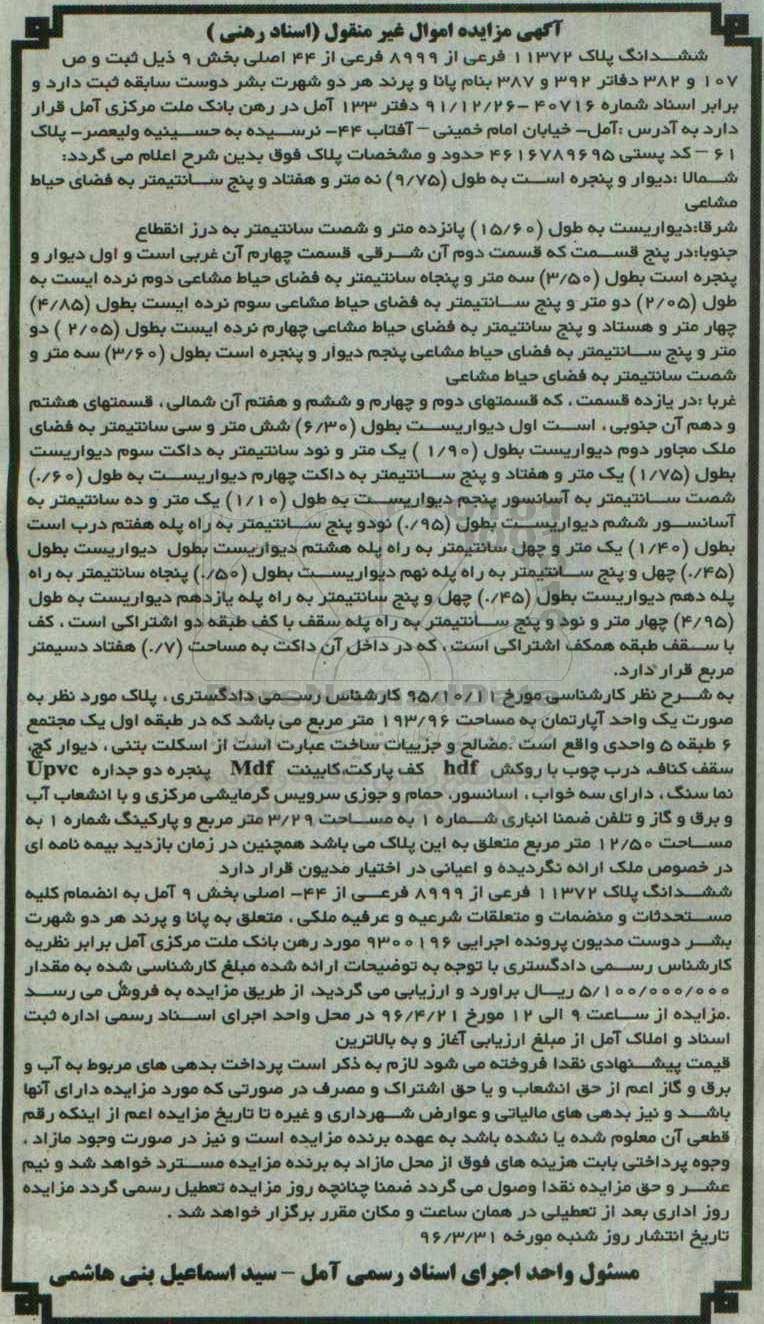 آگهی مزایده اموال غیر منقول (اسناد رهنی )
ششدانگ پلاک ۱۱۳۷۲ فرعی از ۸۹۹۹ فرعی از ۴۴ اصلی بخش ۹ ذیل ثبت و ص
۱۰۷ و ۳۸۲ دفاتر ۳۹۲ و ۳۸۷ بنام پانا و پرند هر دو شهرت بشر دوست سابقه ثبت دارد و
برابر اسناد شماره ۴۰۷۱۶ -۹۱/۱۲/۲۶ دفتر ۱۳۳ آمل در رهن بانک ملت مرکزی آمل قرار
دارد به آدرس :آمل- خیابان امام خمینی – آفتاب ۴۴- نرسیده به حسینیه ولیعصر- پلاک
۶۱ – کد پستی ۴۶۱۶۷۸۹۶۹۵ حدود و مشخصات پلاک فوق بدین شرح اعلام می گردد:
شمالا :دیوار و پنجره است به طول (۹/۷۵) نه متر و هفتاد و پنج سانتیمتر به فضای حیاط
مشاعی
شرقا:دیواریست به طول (۱۵/۶۰) پانزده متر و شصت سانتیمتر به درز انقطاع
جنوبا:در پنج قسمت که قسمت دوم آن شرقی، قسمت چهارم آن غربی است و اول دیوار و
پنجره است بطول (۳/۵۰) سه متر و پنجاه سانتیمتر به فضای حیاط مشاعی دوم نرده ایست به
طول (۲/۰۵) دو متر و پنج سانتیمتر به فضای حیاط مشاعی سوم نرده ایست بطول (۴/۸۵)
چهار متر و هستاد و پنج سانتیمتر به فضای حیاط مشاعی چهارم نرده ایست بطول (۲/۰۵ ) دو
متر و پنج سانتیمتر به فضای حیاط مشاعی پنجم دیوار و پنجره است بطول (۳/۶۰) سه متر و
شصت سانتیمتر به فضای حیاط مشاعی
غربا :در یازده قسمت ، که قسمتهای دوم و چهارم و ششم و هفتم آن شمالی ، قسمتهای هشتم
و دهم آن جنوبی ، است اول دیواریست بطول (۶/۳۰) شش متر و سی سانتیمتر به فضای
ملک مجاور دوم دیواریست بطول (۱/۹۰ ) یک متر و نود سانتیمتر به داکت سوم دیواریست
بطول (۱/۷۵) یک متر و هفتاد و پنج سانتیمتر به داکت چهارم دیواریست به طول (۰/۶۰)
شصت سانتیمتر به آسانسور پنجم دیواریست به طول (۱/۱۰) یک متر و ده سانتیمتر به
آسانسور ششم دیواریست بطول (۰/۹۵) نودو پنج سانتیمتر به راه پله هفتم درب است
بطول (۱/۴۰) یک متر و چهل سانتیمتر به راه پله هشتم دیواریست بطول دیواریست بطول
(۰/۴۵) چهل و پنج سانتیمتر به راه پله نهم دیواریست بطول (۰/۵۰) پنجاه سانتیمتر به راه
پله دهم دیواریست بطول (۰/۴۵) چهل و پنج سانتیمتر به راه پله یازدهم دیواریست به طول
(۴/۹۵) چهار متر و نود و پنج سانتیمتر به راه پله سقف با کف طبقه دو اشتراکی است ، کف
با سقف طبقه همکف اشتراکی است ، که در داخل آن داکت به مساحت (۰/۷) هفتاد دسیمتر
مربع قرار دارد.
به شرح نظر کارشناسی مورخ ۹۵/۱۰/۱۱ کارشناس رسمی دادگستری ، پلاک مورد نظر به
صورت یک واحد آپارتمان به مساحت ۱۹۳/۹۶ متر مربع می باشد که در طبقه اول یک مجتمع
۶ طبقه ۵ واحدی واقع است .مصالح و جزییات ساخت عبارت است از اسکلت بتنی ، دیوار گچ،
سقف کناف، درب چوب با روکش hdf کف پارکت،کابینت Mdf پنجره دو جداره Upvc
نما سنگ ، دارای سه خواب ، اسانسور، حمام و جوزی سرویس گرمایشی مرکزی و با انشعاب آب
و برق و گاز و تلفن ضمنا انباری شماره ۱ به مساحت ۳/۲۹ متر مربع و پارکینگ شماره ۱ به
مساحت ۱۲/۵۰ متر مربع متعلق به این پلاک می باشد همچنین در زمان بازدید بیمه نامه ای
در خصوص ملک ارائه نگردیده و اعیانی در اختیار مدیون قرار دارد
ششدانگ پلاک ۱۱۳۷۲ فرعی از ۸۹۹۹ فرعی از ۴۴- اصلی بخش ۹ آمل به انضمام کلیه
مستحدثات و منضمات و متعلقات شرعیه و عرفیه ملکی ، متعلق به پانا و پرند هر دو شهرت
بشر دوست مدیون پرونده اجرایی ۹۳۰۰۱۹۶ مورد رهن بانک ملت مرکزی آمل برابر نظریه
کارشناس رسمی دادگستری با توجه به توضیحات ارائه شده مبلغ کارشناسی شده به مقدار
۵/۱۰۰/۰۰۰/۰۰۰ ریال براورد و ارزیابی می گردید، از طریق مزایده به فروش می رسد
.مزایده از ساعت ۹ الی ۱۲ مورخ ۹۶/۴/۲۱ در محل واحد اجرای اسناد رسمی اداره ثبت
اسناد و املاک آمل از مبلغ ارزیابی آغاز و به بالاترین
قیمت پیشنهادی نقدا فروخته می شود لازم به ذکر است پرداخت بدهی های مربوط به آب و
برق و گاز اعم از حق انشعاب و یا حق اشتراک و مصرف در صورتی که مورد مزایده دارای آنها
باشد و نیز بدهی های مالیاتی و عوارض شهرداری و غیره تا تاریخ مزایده اعم از اینکه رقم
قطعی آن معلوم شده یا نشده باشد به عهده برنده مزایده است و نیز در صورت وجود مازاد ،
وجوه پرداختی بابت هزینه های فوق از محل مازاد به برنده مزایده مسترد خواهد شد و نیم
عشر و حق مزایده نقدا وصول می گردد ضمنا چنانچه روز مزایده تعطیل رسمی گردد مزایده
روز اداری بعد از تعطیلی در همان ساعت و مکان مقرر برگزار خواهد شد .
تاریخ انتشار روز شنبه مورخه ۹۶/۳/۳۱
مسئول واحد اجرای اسناد رسمی آمل – سید اسماعیل بنی هاشمی